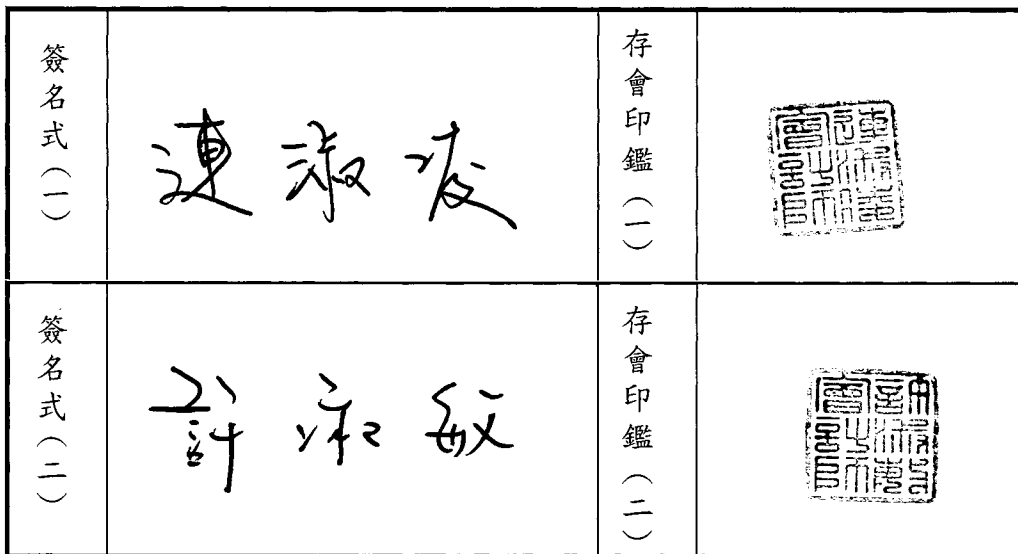 簽名式（一）
連淑凌
存會印鑑（一）
簽名式（二）
許淑敏
存會印鑑（二）